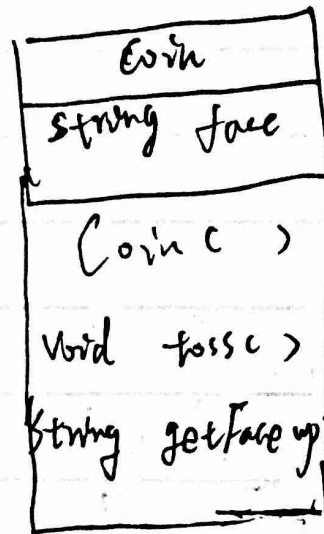 Coin
string face
Coin( )
void toss( )
string getFace up